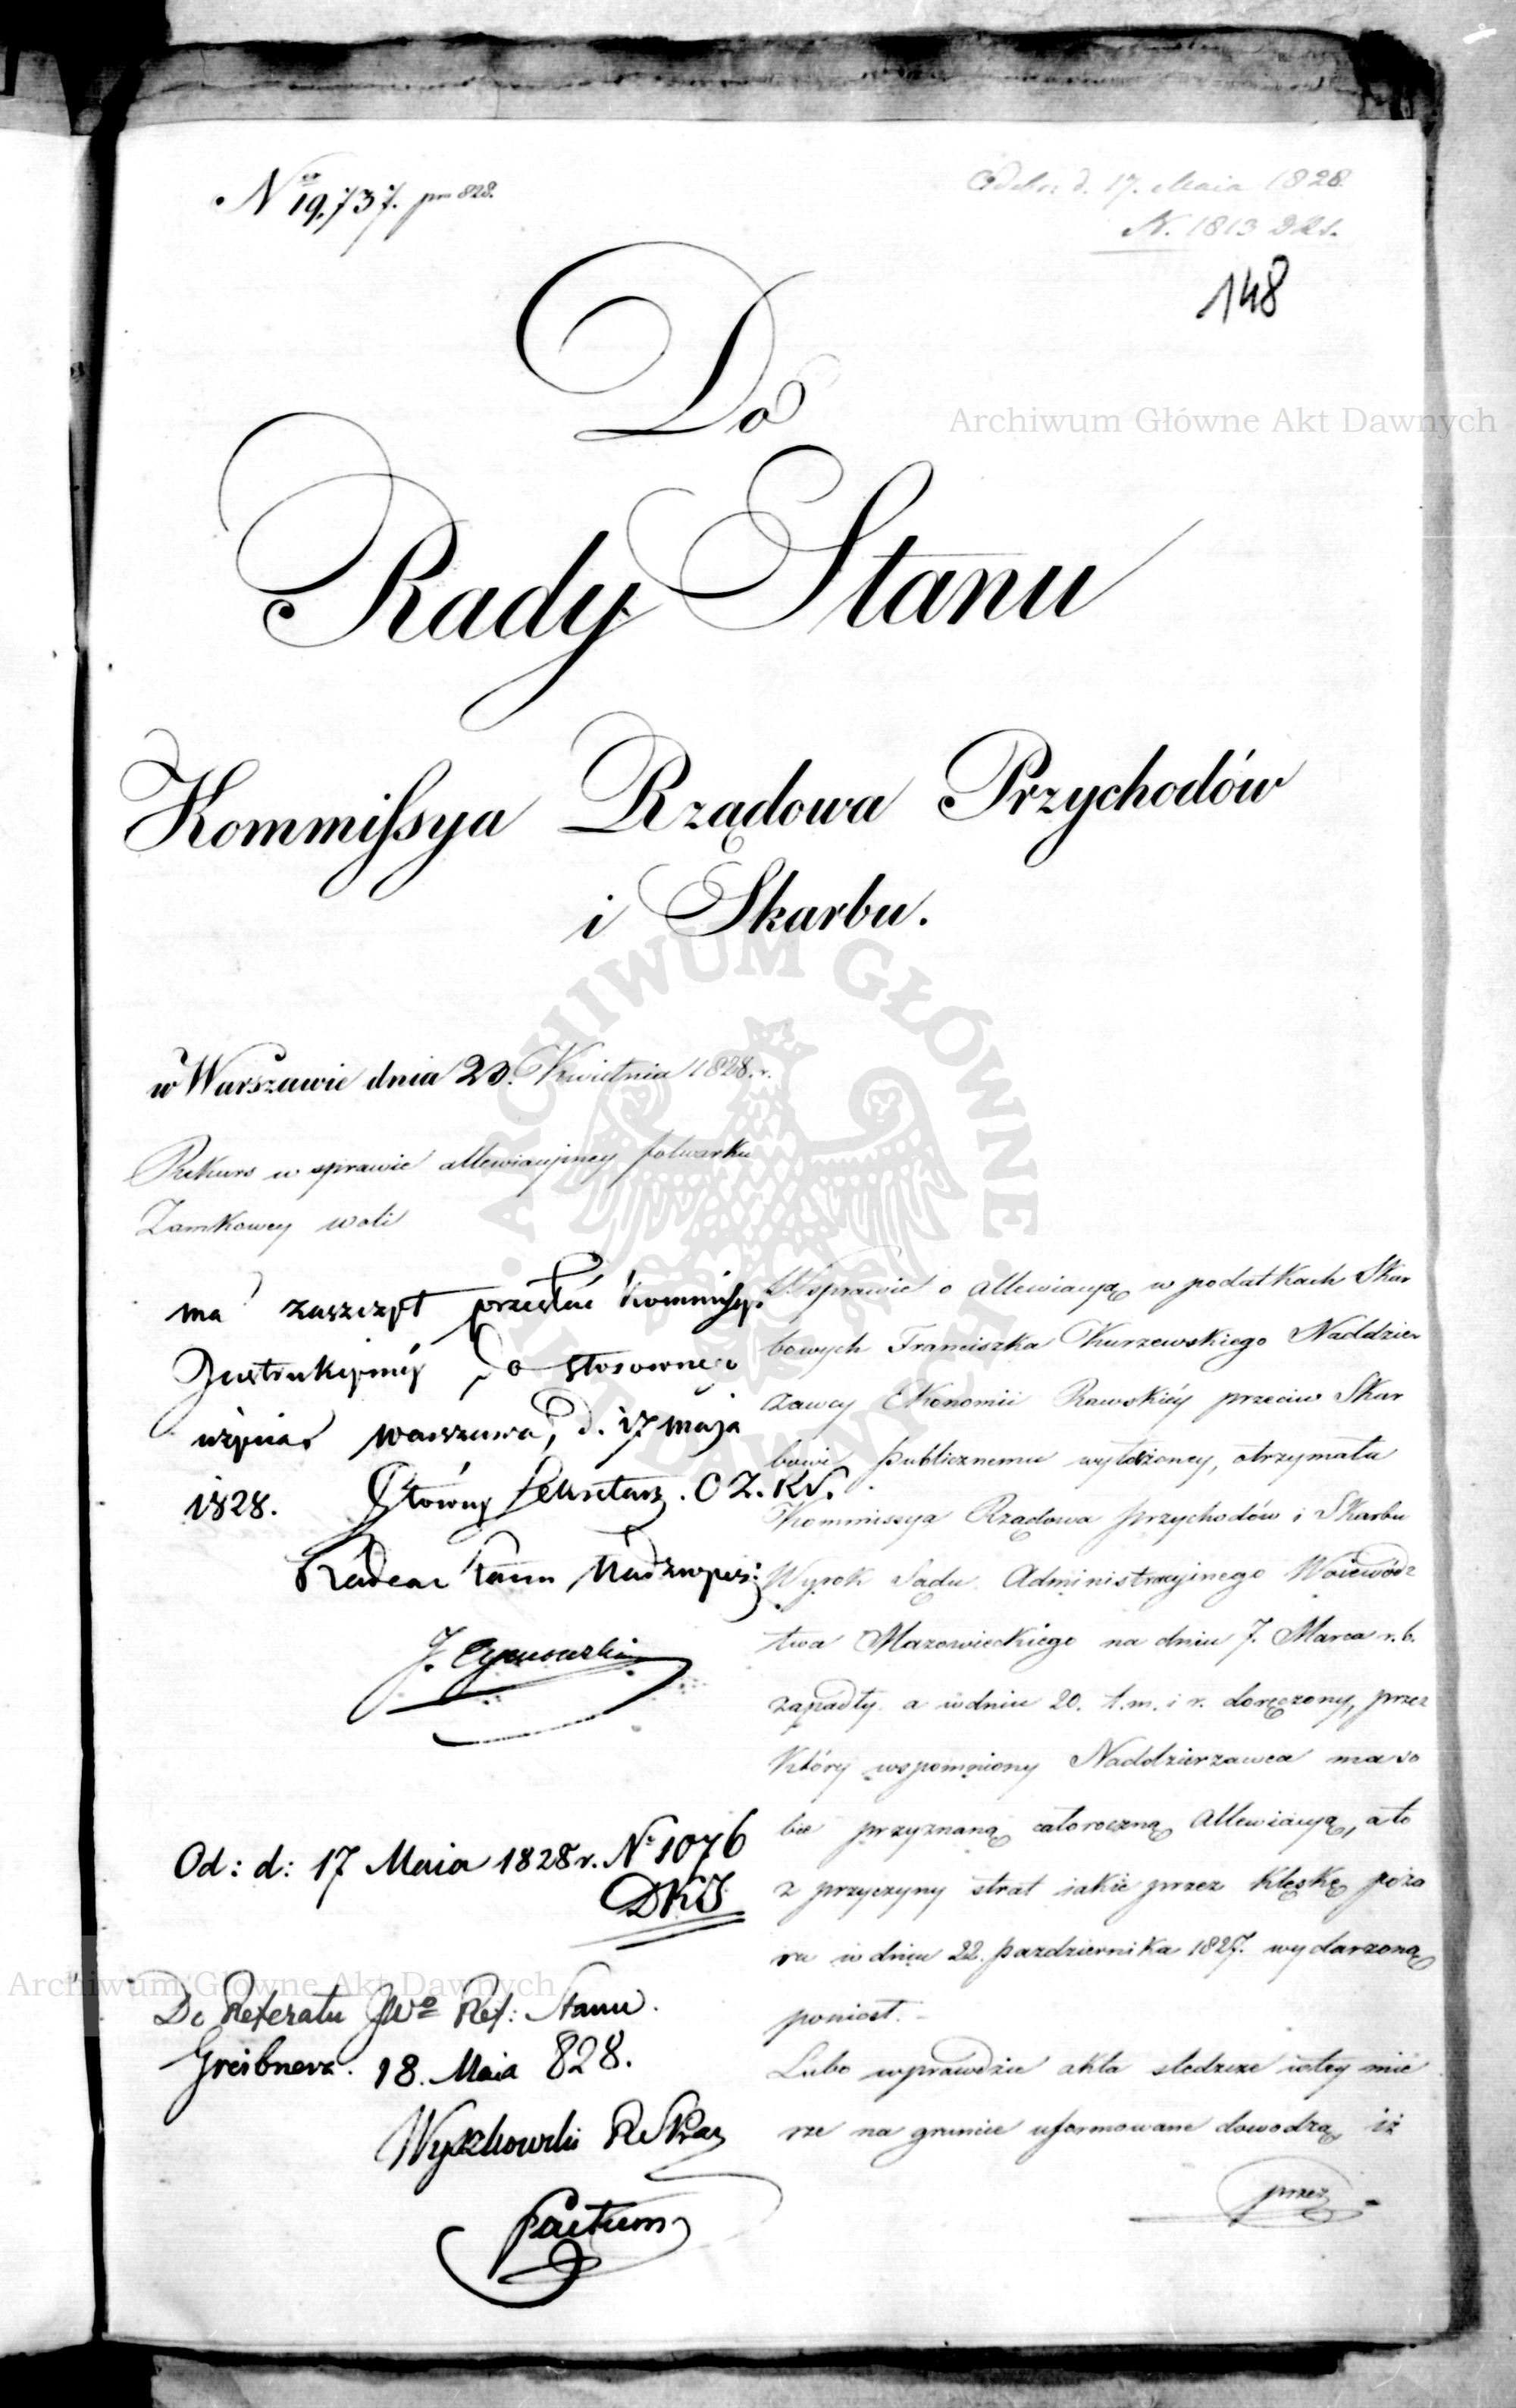 No 19,737. pro 828.
Odebr. d. 17. Maia 1828.
N. 1813 DKS.
148
Do
Rady Stanu
Kommissya Rządowa Przychodów
i Skarbu.
w Warszawie dnia 20. Kwietnia 1828. r.
Rekurs w sprawie allewiacyjney folwarku
Zamkowey woli
ma zaszczyt przesłać Kommissyi
Instrukcyinéy do stosownego
użycia Warszawa, d. 17 maja
1828. Główny Sekretarz. O Z. KS.
Radca Stanu Nadzwyczi:
Od: d: 17 Maia 1828 r. No 1076
DKJ
Do Referatu JWo Ref: Stanu.
Greibnera. 18. Maia 828.
Wyszkowski
factum
W sprawie o allewiacyą w podatkach Skar
bowych Franciszka Kurzewskiego Naddzier
żawcy Ekonomii Rawskiéy przeciw Skar
bowi Publicznemu wytoczoney, otrzymała
Kommissya Rządowa Przychodów i Skarbu
Wyrok Sądu Administracyinego Woiewódz
twa Mazowieckiego na dniu 7. Marca r. b.
zapadły a w dniu 20. t. m. i r. doręczony, przez
Który wspomniony Naddzierzawca ma so
bie przyznaną całoroczną Allewiacyą, a to
z przyczyny strat iakie przez Klęskę poża
ru w dniu 22. Pazdziernika 1827. wydarzoną
poniosł. -
Lubo wprawdzie akta sledcze w tey mie
rze na gruncie uformowane dowodzą, iż
przez
Archiwum Główne Akt Dawnych
Archiwum Główne Akt Dawnych
ARCHIWUM GŁÓWNE AKT DAWNYCH